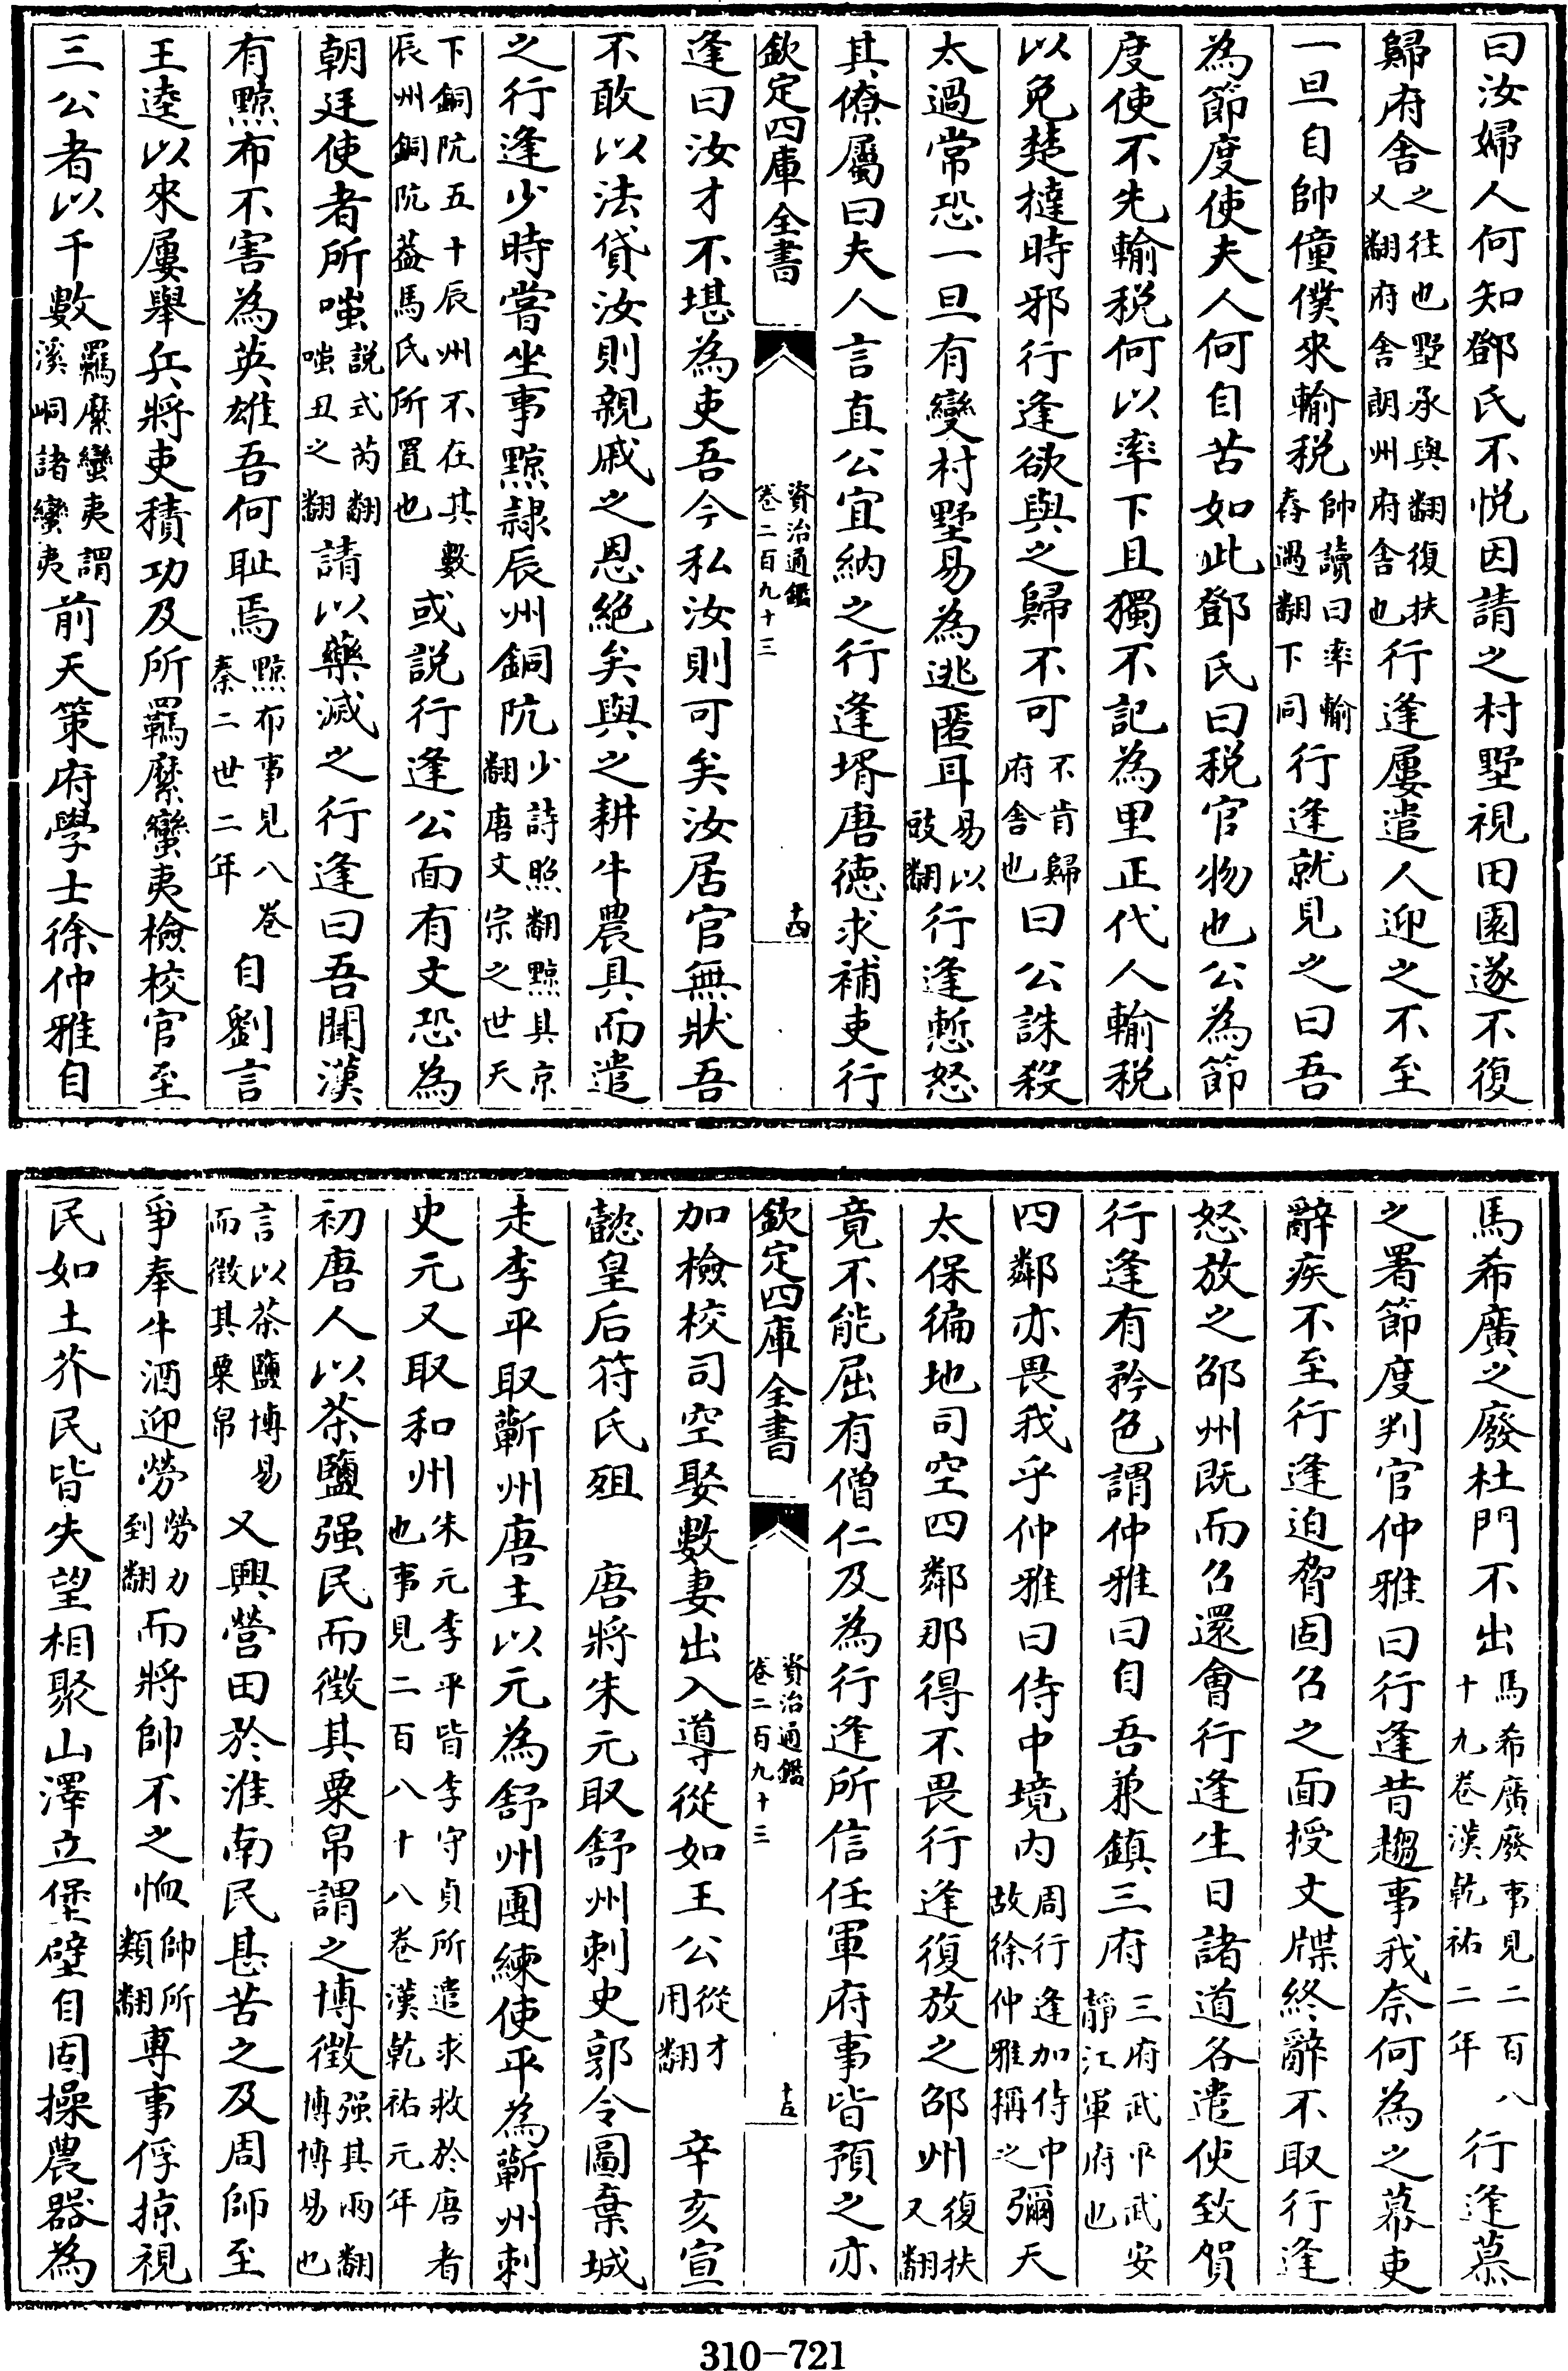 曰汝婦人何知鄧氏不悦因請之村墅視田園遂不復
歸府舍之往也墅承與翻復扶又翻府舍朗州府舍也行逢屢遣人迎之不至
一旦自帥僮僕來輸税帥讀曰率輸春遇翻下同行逢就見之曰吾
為節度使夫人何自苦如此鄧氏曰税官物也公為節
度使不先輸税何以率下且獨不記為里正代人輸税
以免楚撻時邪行逢欲與之歸不可不肯歸府舍也曰公誅殺
太過常恐一旦有變村墅易為逃匿耳易以豉翻行逢慙怒
其僚屬曰夫人言直公宜納之行逢壻唐德求補吏行
欽定四庫全書
資治通鑑
卷二百九十三
十四
逢曰汝才不堪為吏吾今私汝則可矣汝居官無狀吾
不敢以法貸汝則親戚之恩絶矣與之耕牛農具而遣
之行逢少時嘗坐事黥隸辰州銅阬少詩照翻黥其京翻唐文宗之世天
下銅阬五十辰州不在其數辰州銅阬葢馬氏所置也或説行逢公面有文恐為
朝廷使者所嗤説式芮翻嗤丑之翻請以藥滅之行逢曰吾聞漢
有黥布不害為英雄吾何耻焉黥布事見八卷秦二世二年自劉言
王逵以來屢舉兵將吏積功及所羈縻蠻夷檢校官至
三公者以千數羈縻蠻夷謂溪峒諸蠻夷前天策府學士徐仲雅自
馬希廣之廢杜門不出馬希廣廢事見二百八十九卷漢乾祐二年行逢慕
之署節度判官仲雅曰行逢昔趨事我奈何為之幕吏
辭疾不至行逢迫脅固召之面授文牒終辭不取行逢
怒放之邵州既而召還會行逢生日諸道各遣使致賀
行逢有矜色謂仲雅曰自吾兼鎮三府三府武平武安靜江軍府也
四鄰亦畏我乎仲雅曰侍中境内周行逢加侍中故徐仲雅稱之彌天
太保徧地司空四鄰那得不畏行逢復放之邵州復扶又翻
竟不能屈有僧仁及為行逢所信任軍府事皆預之亦
欽定四庫全書
資治通鑑
卷二百九十三
十五
加檢校司空娶數妻出入導從如王公從才用翻 辛亥宣
懿皇后符氏殂 唐將朱元取舒州刺史郭令圖棄城
走李平取蘄州唐主以元為舒州團練使平為蘄州刺
史元又取和州朱元李平皆李守貞所遣求救於唐者也事見二百八十八卷漢乾祐元年
初唐人以茶鹽强民而徵其粟帛謂之博徵强其兩翻博博易也
言以茶鹽博易而徵其粟帛又興營田於淮南民甚苦之及周師至
爭奉牛酒迎勞勞力到翻而將帥不之恤帥所類翻專事俘掠視
民如土芥民皆失望相聚山澤立堡壁自固操農器為
310-721